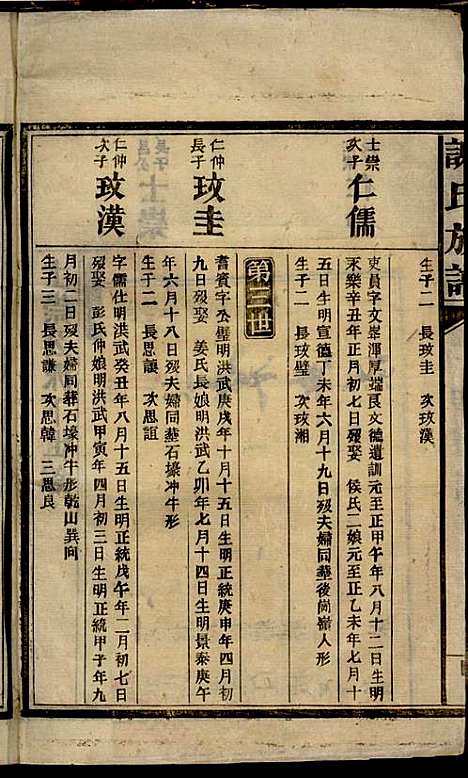 氏族譜
生子二 長玟圭 次玟漢
士崇次子 仁儒
吏員字文峯渾厚端良文德遺訓元至正甲午年八月十二日生明
永樂辛丑年正月初七日歿娶 侯氏二娘元至正乙未年七月十
五日生明宣德丁未年六月十九日歿夫婦同葬後崗嶺人形
生子二 長玟璧 次玟湘
第三世
仁仲長子 玟圭
耆賓字公璧明洪武庚戌年十月十五日生明正統庚申年四月初
九日歿娶 姜氏長娘明洪武乙卯年七月十四日生明景泰庚午
年六月十八日歿夫婦同葬石壕冲牛形
生子二 長思讓 次思誼
仁仲次子 玟漢
字儒仕明洪武癸丑年八月十五日生明正統戊午年二月初七日
歿娶 彭氏仲娘明洪武甲寅年四月初三日生明正統甲子年九
月初二日歿夫婦同葬石壕冲牛形乾山巽向
生子三 長思謙 次思韓 三思良